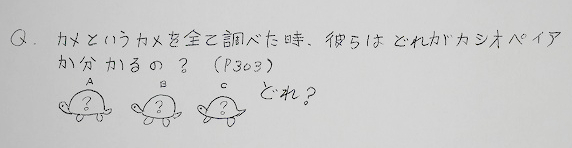 Q. カメというカメを全て調べた時、彼らはどれがカシオペイア
か分かるの？ (P303)
A B C
? ? ? どれ?